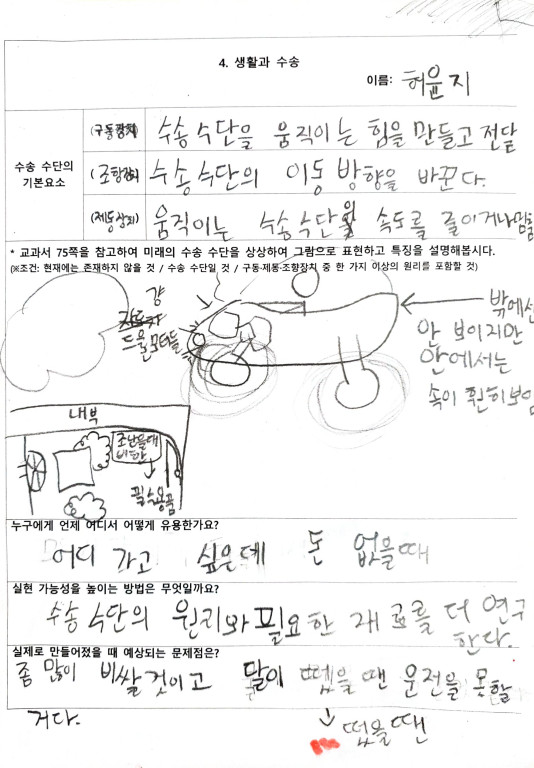 4. 생활과 수송
이름: 허윤지
수송 수단의
기본요소
(구동장치) 수송 수단을 움직이는 힘을 만들고 전달
(조향장치) 수송수단의 이동 방향을 바꾼다.
(제동장치) 움직이는 수송수단의 속도를 줄이거나 멈춤
* 교과서 75쪽을 참고하여 미래의 수송 수단을 상상하여 그림으로 표현하고 특징을 설명해봅시다.
(※조건: 현재에는 존재하지 않을 것 / 수송 수단일 것 / 구동·제동·조향장치 중 한 가지 이상의 원리를 포함할 것)
걍
밖에선
안 보이지만
안에서는
속이 훤히보임
내부
필수용품
누구에게 언제 어디서 어떻게 유용한가요?
어디 가고 싶은데 돈 없을때
실현 가능성을 높이는 방법은 무엇일까요?
수송 수단의 원리와 필요한 재료를 더 연구
한다.
실제로 만들어졌을 때 예상되는 문제점은?
좀 많이 비쌀것이고 달이 떴을 땐 운전을 못할
거다.
떴을땐